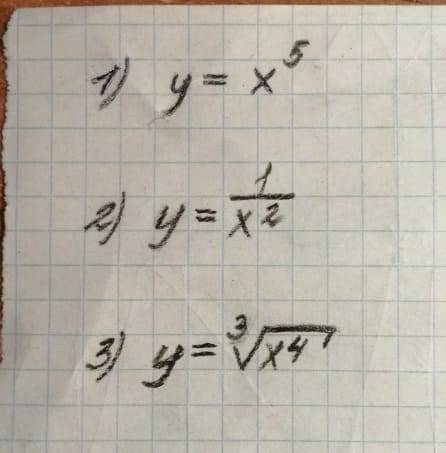 1) y = x⁵
2) y = 1/x²
3) y = ∛x⁴